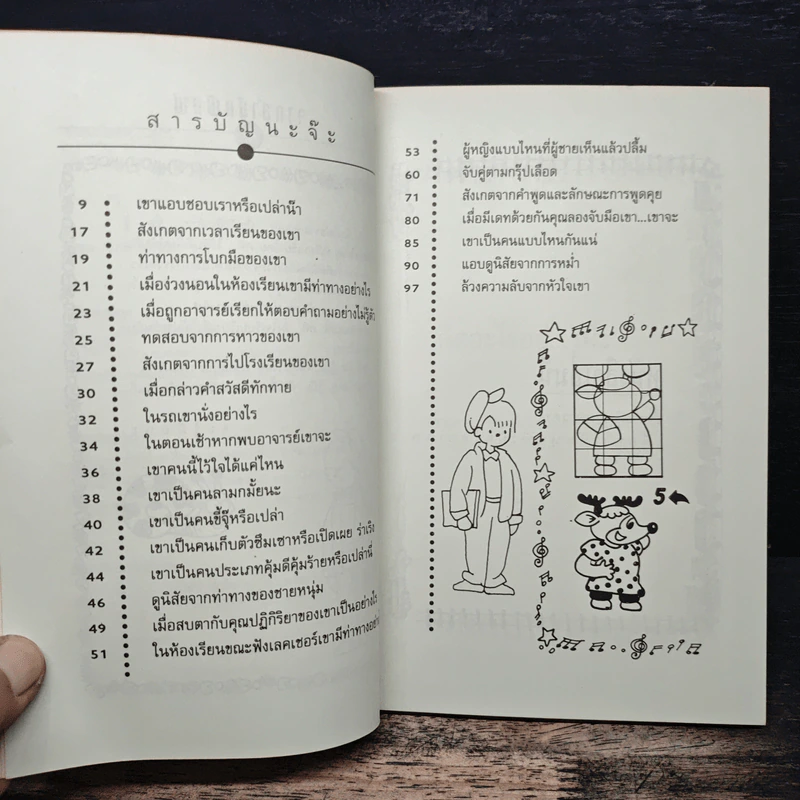 สารบัญนะจ๊ะ
9 เขาแอบชอบเราหรือเปล่าน๊า
17 สังเกตจากเวลาเรียนของเขา
19 ท่าทางการโบกมือของเขา
21 เมื่อง่วงนอนในห้องเรียนเขามีท่าทางอย่างไร
23 เมื่อถูกอาจารย์เรียกให้ตอบคำถามอย่างไม่รู้ตัว
25 ทดสอบจากการหาวของเขา
27 สังเกตจากการไปโรงเรียนของเขา
30 เมื่อกล่าวคำสวัสดีทักทาย
32 ในรถเขานั่งอย่างไร
34 ในตอนเช้าหากพบอาจารย์เขาจะ
36 เขาคนนี้ไว้ใจได้แค่ไหน
38 เขาเป็นคนลามกมั้ยนะ
40 เขาเป็นคนขี้จุ๊หรือเปล่า
42 เขาเป็นคนเก็บตัวซึมเซาหรือเปิดเผย ร่าเริง
44 เขาเป็นคนประเภทคุ้มดีคุ้มร้ายหรือเปล่านี่
46 ดูนิสัยจากท่าทางของชายหนุ่ม
49 เมื่อสบตากับคุณปฏิกิริยาของเขาเป็นอย่างไร
51 ในห้องเรียนขณะฟังเลคเชอร์เขามีท่าทาง
53 ผู้หญิงแบบไหนที่ผู้ชายเห็นแล้วปลื้ม
60 จับคู่ตามกรุ๊ปเลือด
71 สังเกตจากคำพูดและลักษณะการพูดคุย
80 เมื่อมีเดทด้วยกันคุณลองจับมือเขา...เขาจะ
85 เขาเป็นคนแบบไหนกันแน่
90 แอบดูนิสัยจากการหม่ำ
97 ล้วงความลับจากหัวใจเขา
5